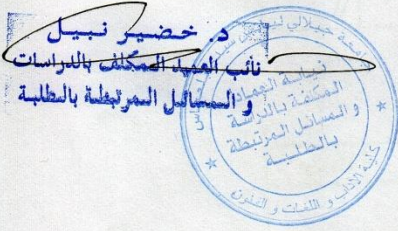 د. خضير نبيل
نائب العميد المكلف بالدراسات
و المسائل المرتبطة بالطلبة
جامعة جيلالي
نيابة العمادة
المكلفة بالدراسة
و المسائل المرتبطة
بالطلبة
كلية الآداب و اللغات و الفنون